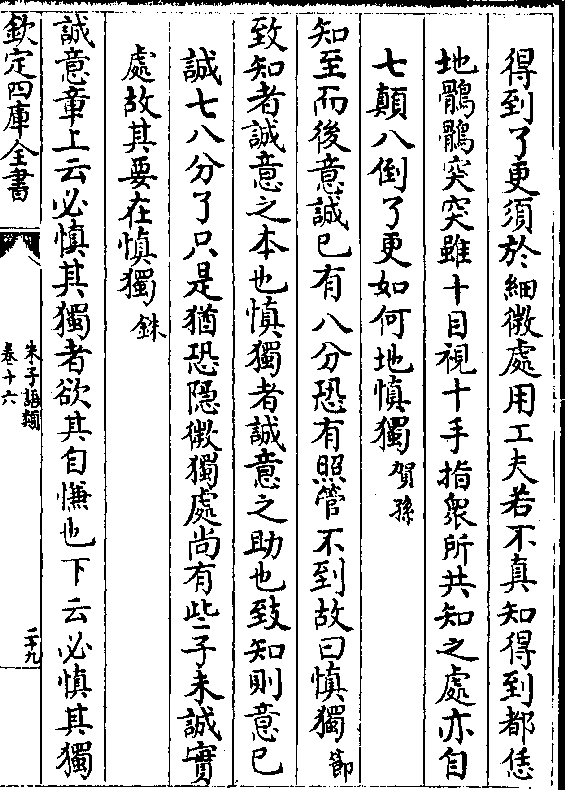 得到了更須於細微處用工夫若不真知得到都恁
地鶻鶻突突雖十目視十手指衆所共知之處亦自
七顛八倒了更如何地慎獨賀孫
知至而後意誠已有八分恐有照管不到故曰慎獨節
致知者誠意之本也慎獨者誠意之助也致知則意已
誠七八分了只是猶恐隱微獨處尚有些子未誠實
處故其要在慎獨銖
誠意章上云必慎其獨者欲其自慊也下云必慎其獨
欽定四庫全書
朱子語類
卷十六
二十九